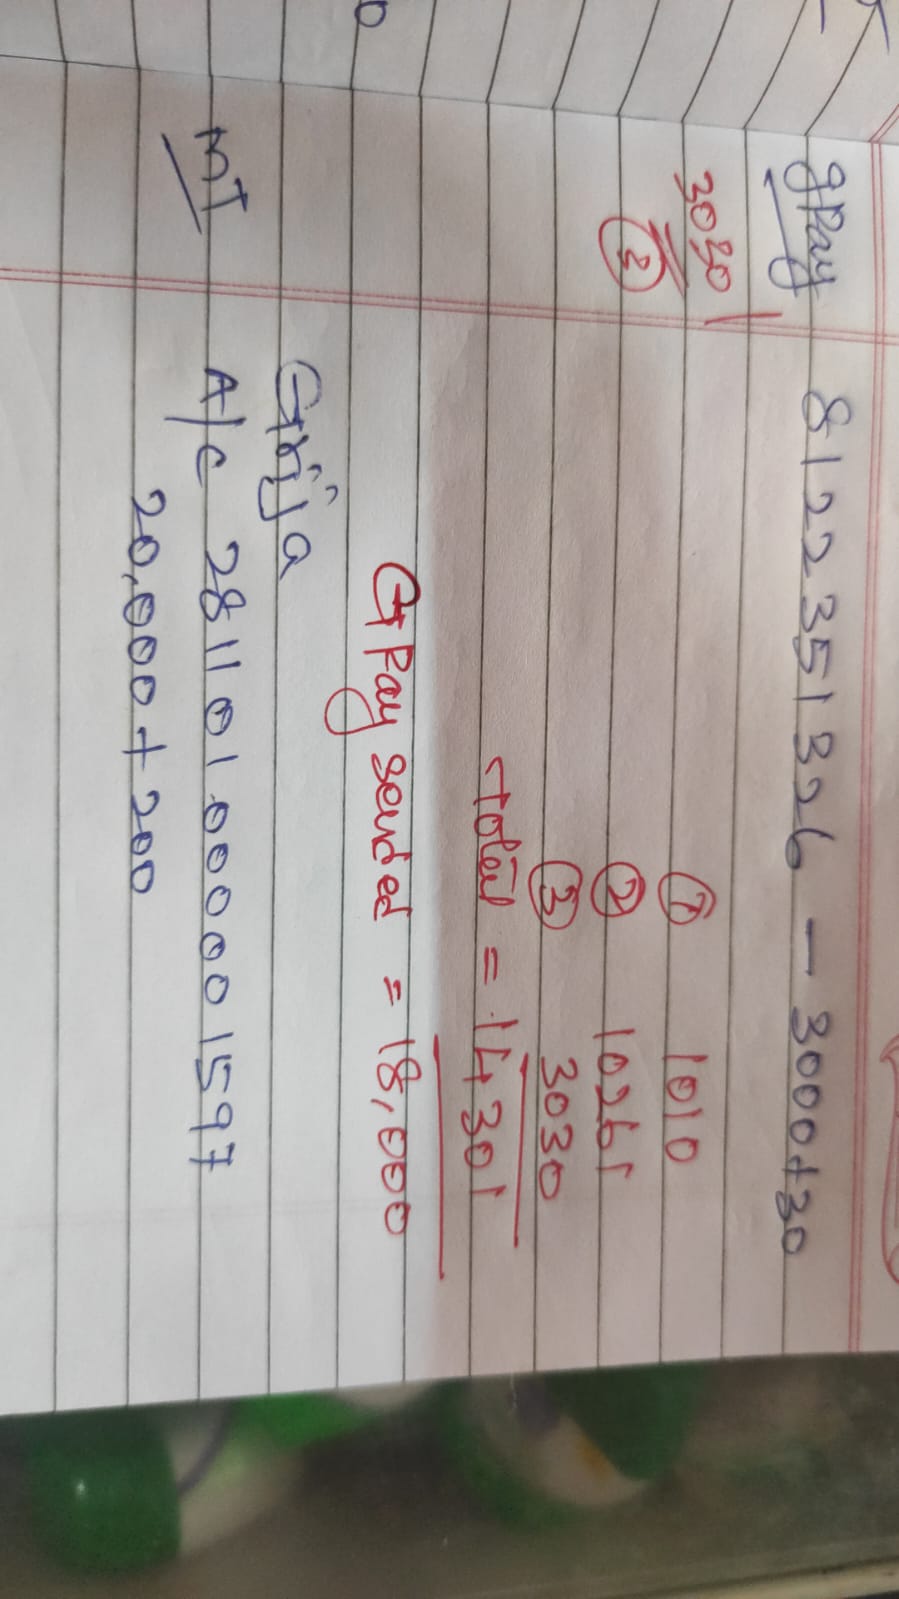 gpay 8122351326 - 3000+30
3030
③
① 1010
② 10261
③ 3030
Total = 14301
GPay sended = 18,000
Grija
MT A/C 281101000001597
20,000 + 200